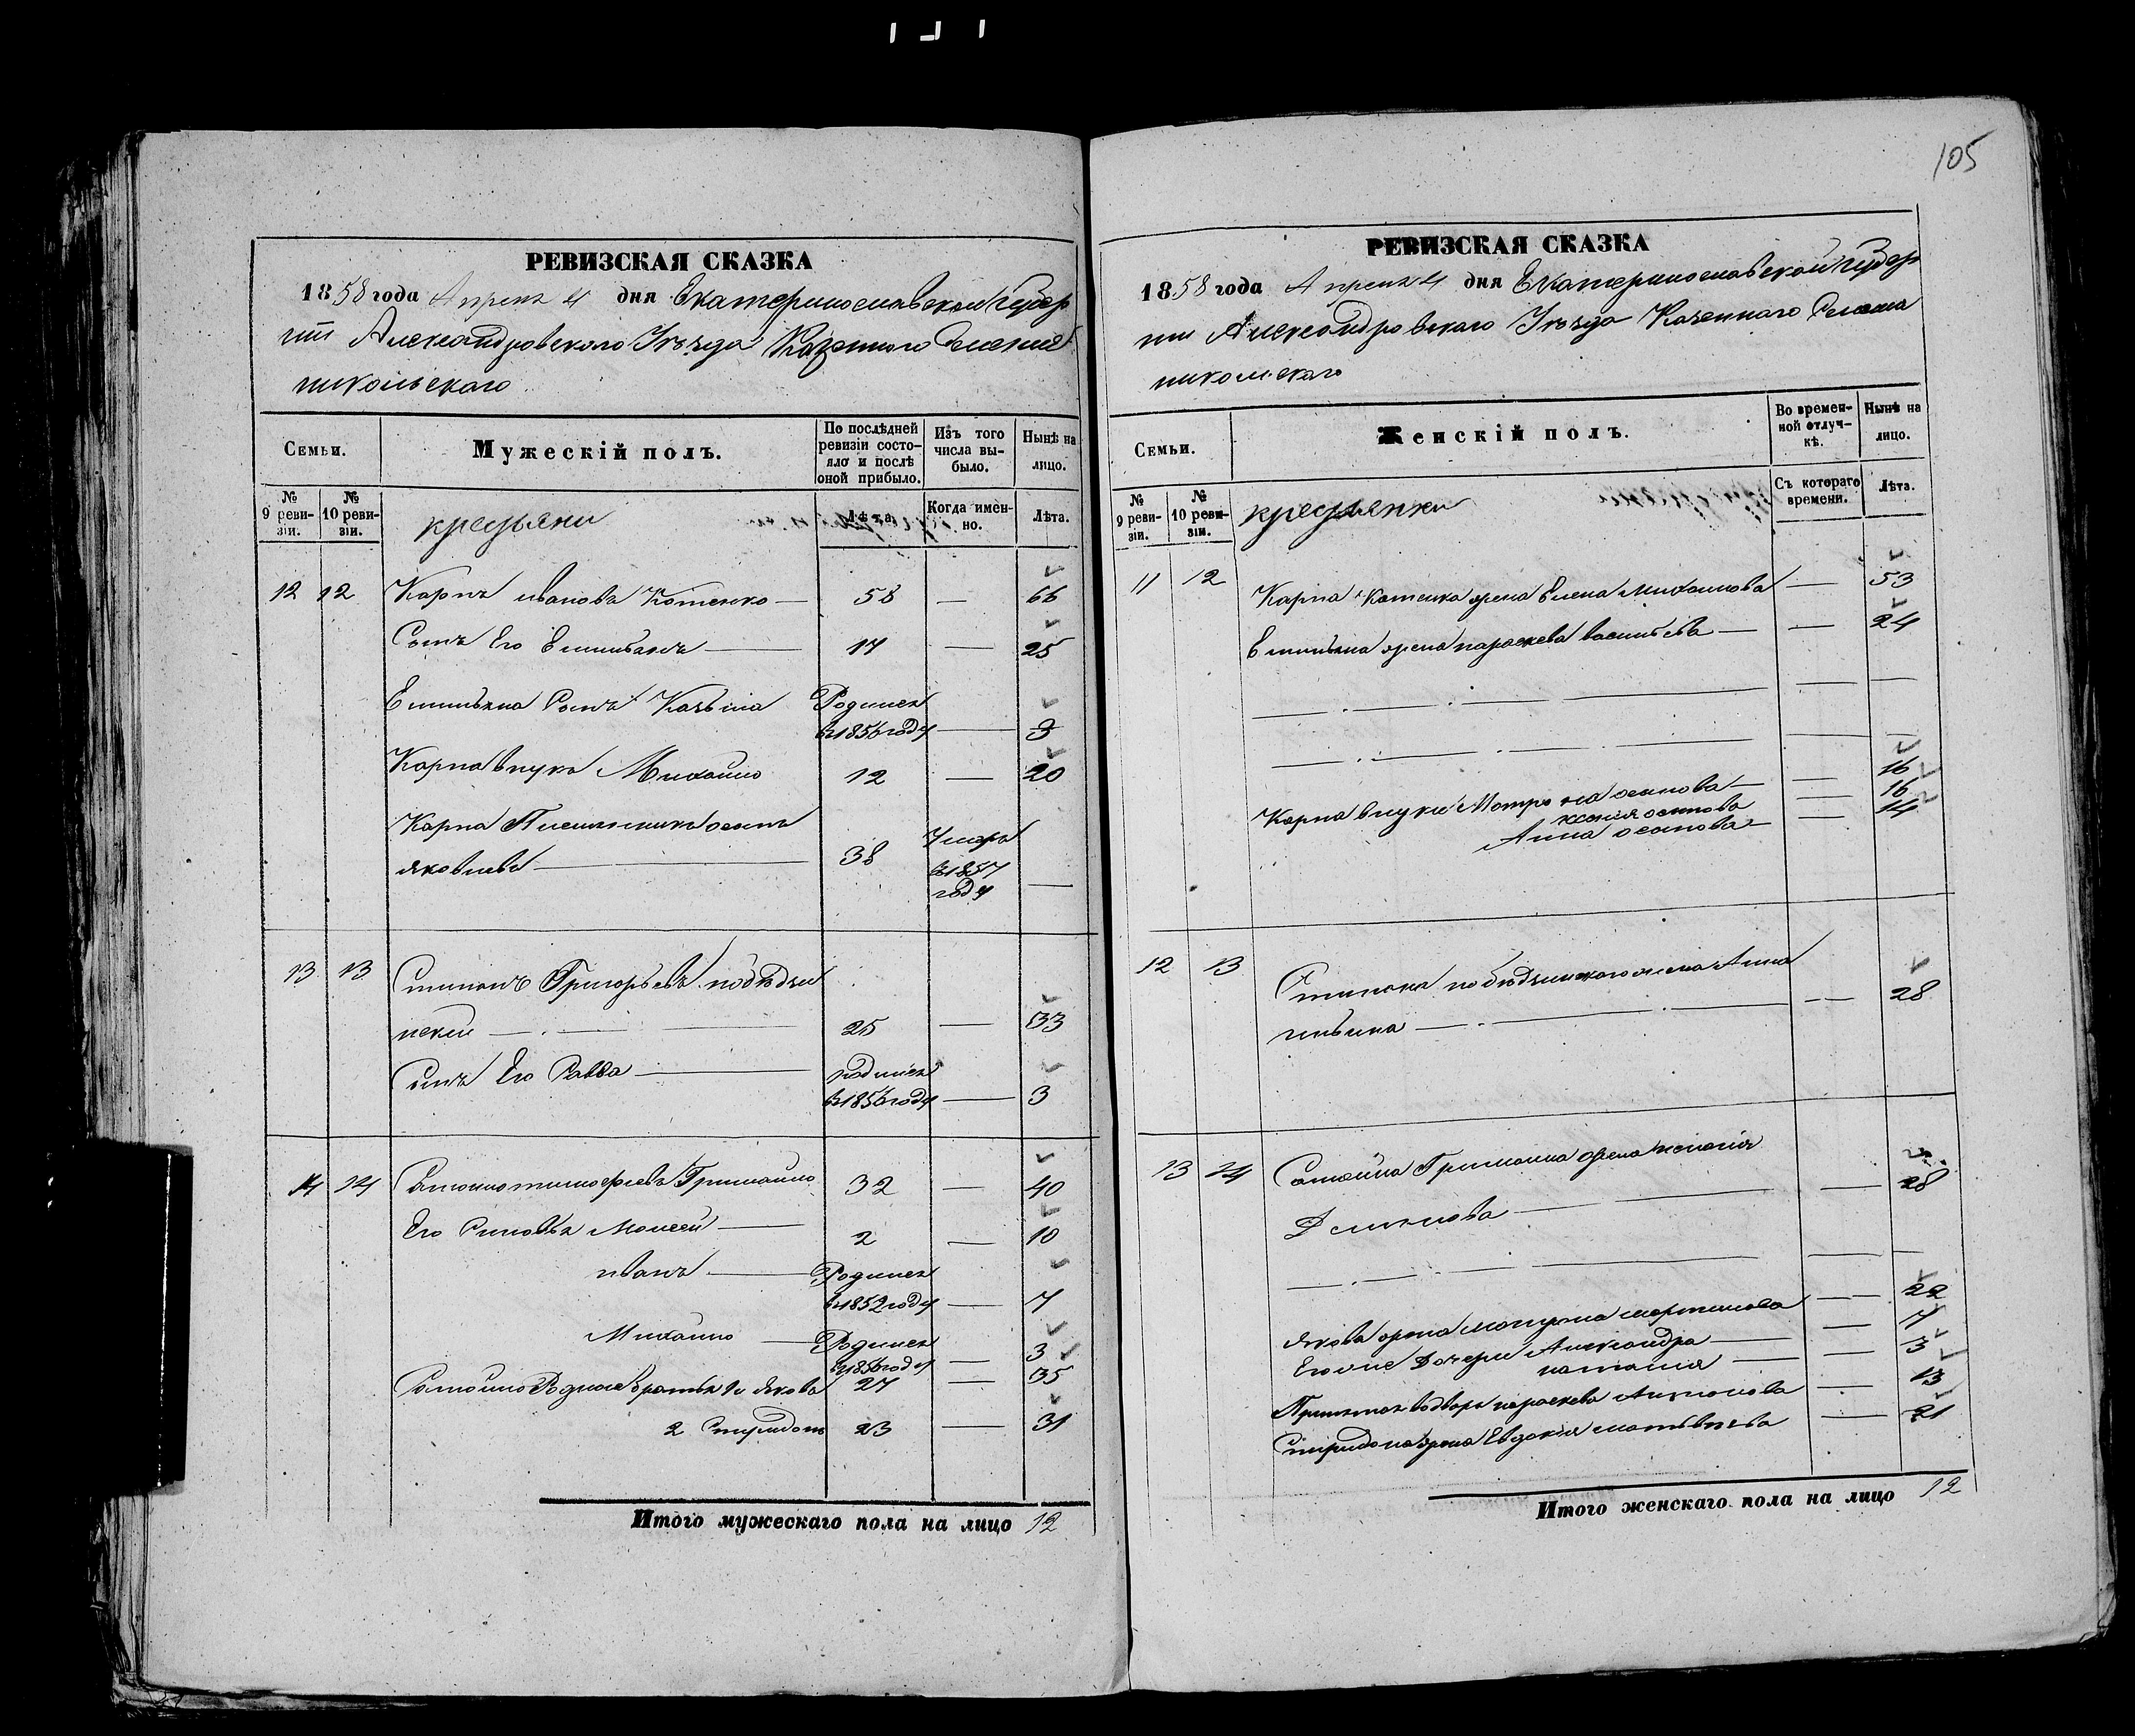 105
РЕВИЗСКАЯ СКАЗКА
1858 года Апреля 4 дня Екатеринославской губер
нии Александровского Уезда Казенного Селения
никольского
Семьи.
Мужескій полъ.
По послѣдней ревизіи состояло и послѣ оной прибыло.
Изъ того числа выбыло.
Нынѣ на лицо.
№ 9 ревизіи.
№ 10 ревизіи.
крестьяни
Лѣта.
Когда именно.
Лѣта.
12 12 Карпъ иванова Котенко — 58 — 66
Сынъ Его Емилианъ — 17 — 25
Емилиана Сынъ Козьма Родился
въ 1856 году — 3
Карпа внукъ Михайло 12 — 20
Карпа Племянникъ осипъ Умеръ
яковлевъ — 38 въ 1857
году —
13 13 Степанъ Григорьевъ побѣдин
ский — 25 — 33
Сынъ Его Савва — родился
въ 1856 году — 3
14 14 тимофеевъ 32 — 40
Его Синовья Моисей — 2 — 10
иванъ — Родился
въ 1852 году — 7
Михайло — Родился
въ 1856 году — 3
Родные Братья 1й Яковъ 27 — 35
2 Спиридонъ 23 — 31
Итого мужескаго пола на лицо 12
РЕВИЗСКАЯ СКАЗКА
1858 года Апреля 4 дня Екатеринославской губер
нии Александровского Уезда Казенного Селения
никольского
Семьи.
Женскій полъ.
Во временной отлучкѣ.
Нынѣ на лицо.
№ 9 ревизіи.
№ 10 ревизіи.
крестьянки
Съ котораго времени.
Лѣта.
11 12 Карпа Котенка жена Елена Михайлова — 53
Емилиана жена параскева васильева — — 24
Карпа внуки Мотрона осипова — — 16
ксения осипова — 16
Анна осипова — — 14
12 13 Степана побѣдинского жена Анна
ильина — — 28
13 14 жена пелагия
— — 28
якова жена мартинова — 22
Его же Дочери Александра — — 7
наталия — — 3
параскева Антонова — 13
Спиридона жена Евдокия матвѣева — 21
Итого женскаго пола на лицо 12